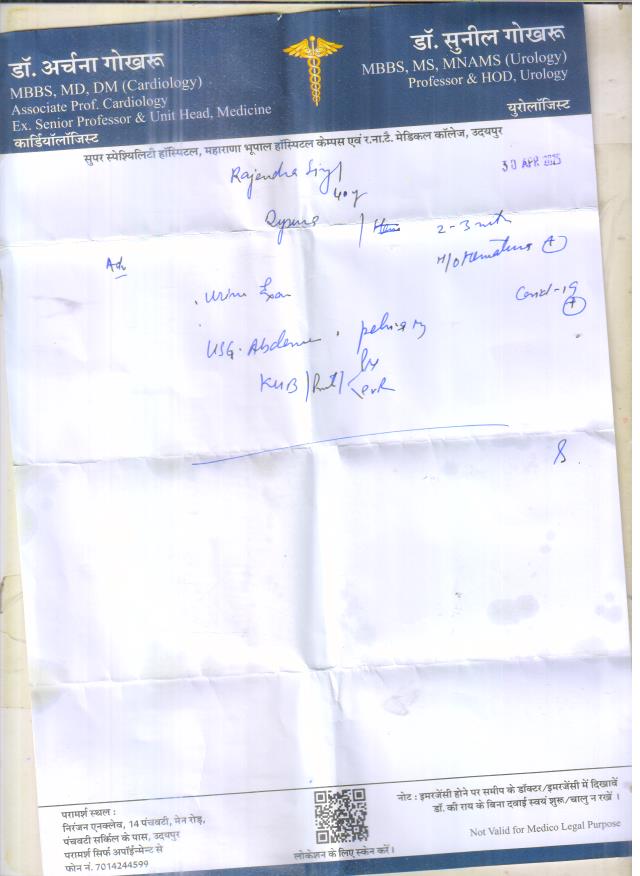 डॉ. अर्चना गोखरू
MBBS, MD, DM (Cardiology)
Associate Prof. Cardiology
Ex. Senior Professor & Unit Head, Medicine
कार्डियॉलॉजिस्ट
डॉ. सुनील गोखरू
MBBS, MS, MNAMS (Urology)
Professor & HOD, Urology
युरोलॉजिस्ट
सुपर स्पेश्यिलिटी हॉस्पिटल, महाराणा भूपाल हॉस्पिटल केम्पस एवं र.ना.टै. मेडिकल कॉलेज, उदयपुर
30 APR 2025
Rajendra Singh
40 y
2-3 mth
H/O Hematuria +
Adv
Covid-19
+
Urine Exam
USG. Abdomen
KUB / Prost / PVR
परामर्श स्थल :
निरंजन एनक्लेव, 14 पंचवटी, मेन रोड़,
पंचवटी सर्किल के पास, उदयपुर
परामर्श सिर्फ अपॉईन्मेन्ट से
फोन नं. 7014244599
लोकेशन के लिए स्केन करें।
नोट : इमरजेंसी होने पर समीप के डॉक्टर/इमरजेंसी में दिखावें
डॉ. की राय के बिना दवाई स्वयं शुरू/चालु न रखें ।
Not Valid for Medico Legal Purpose